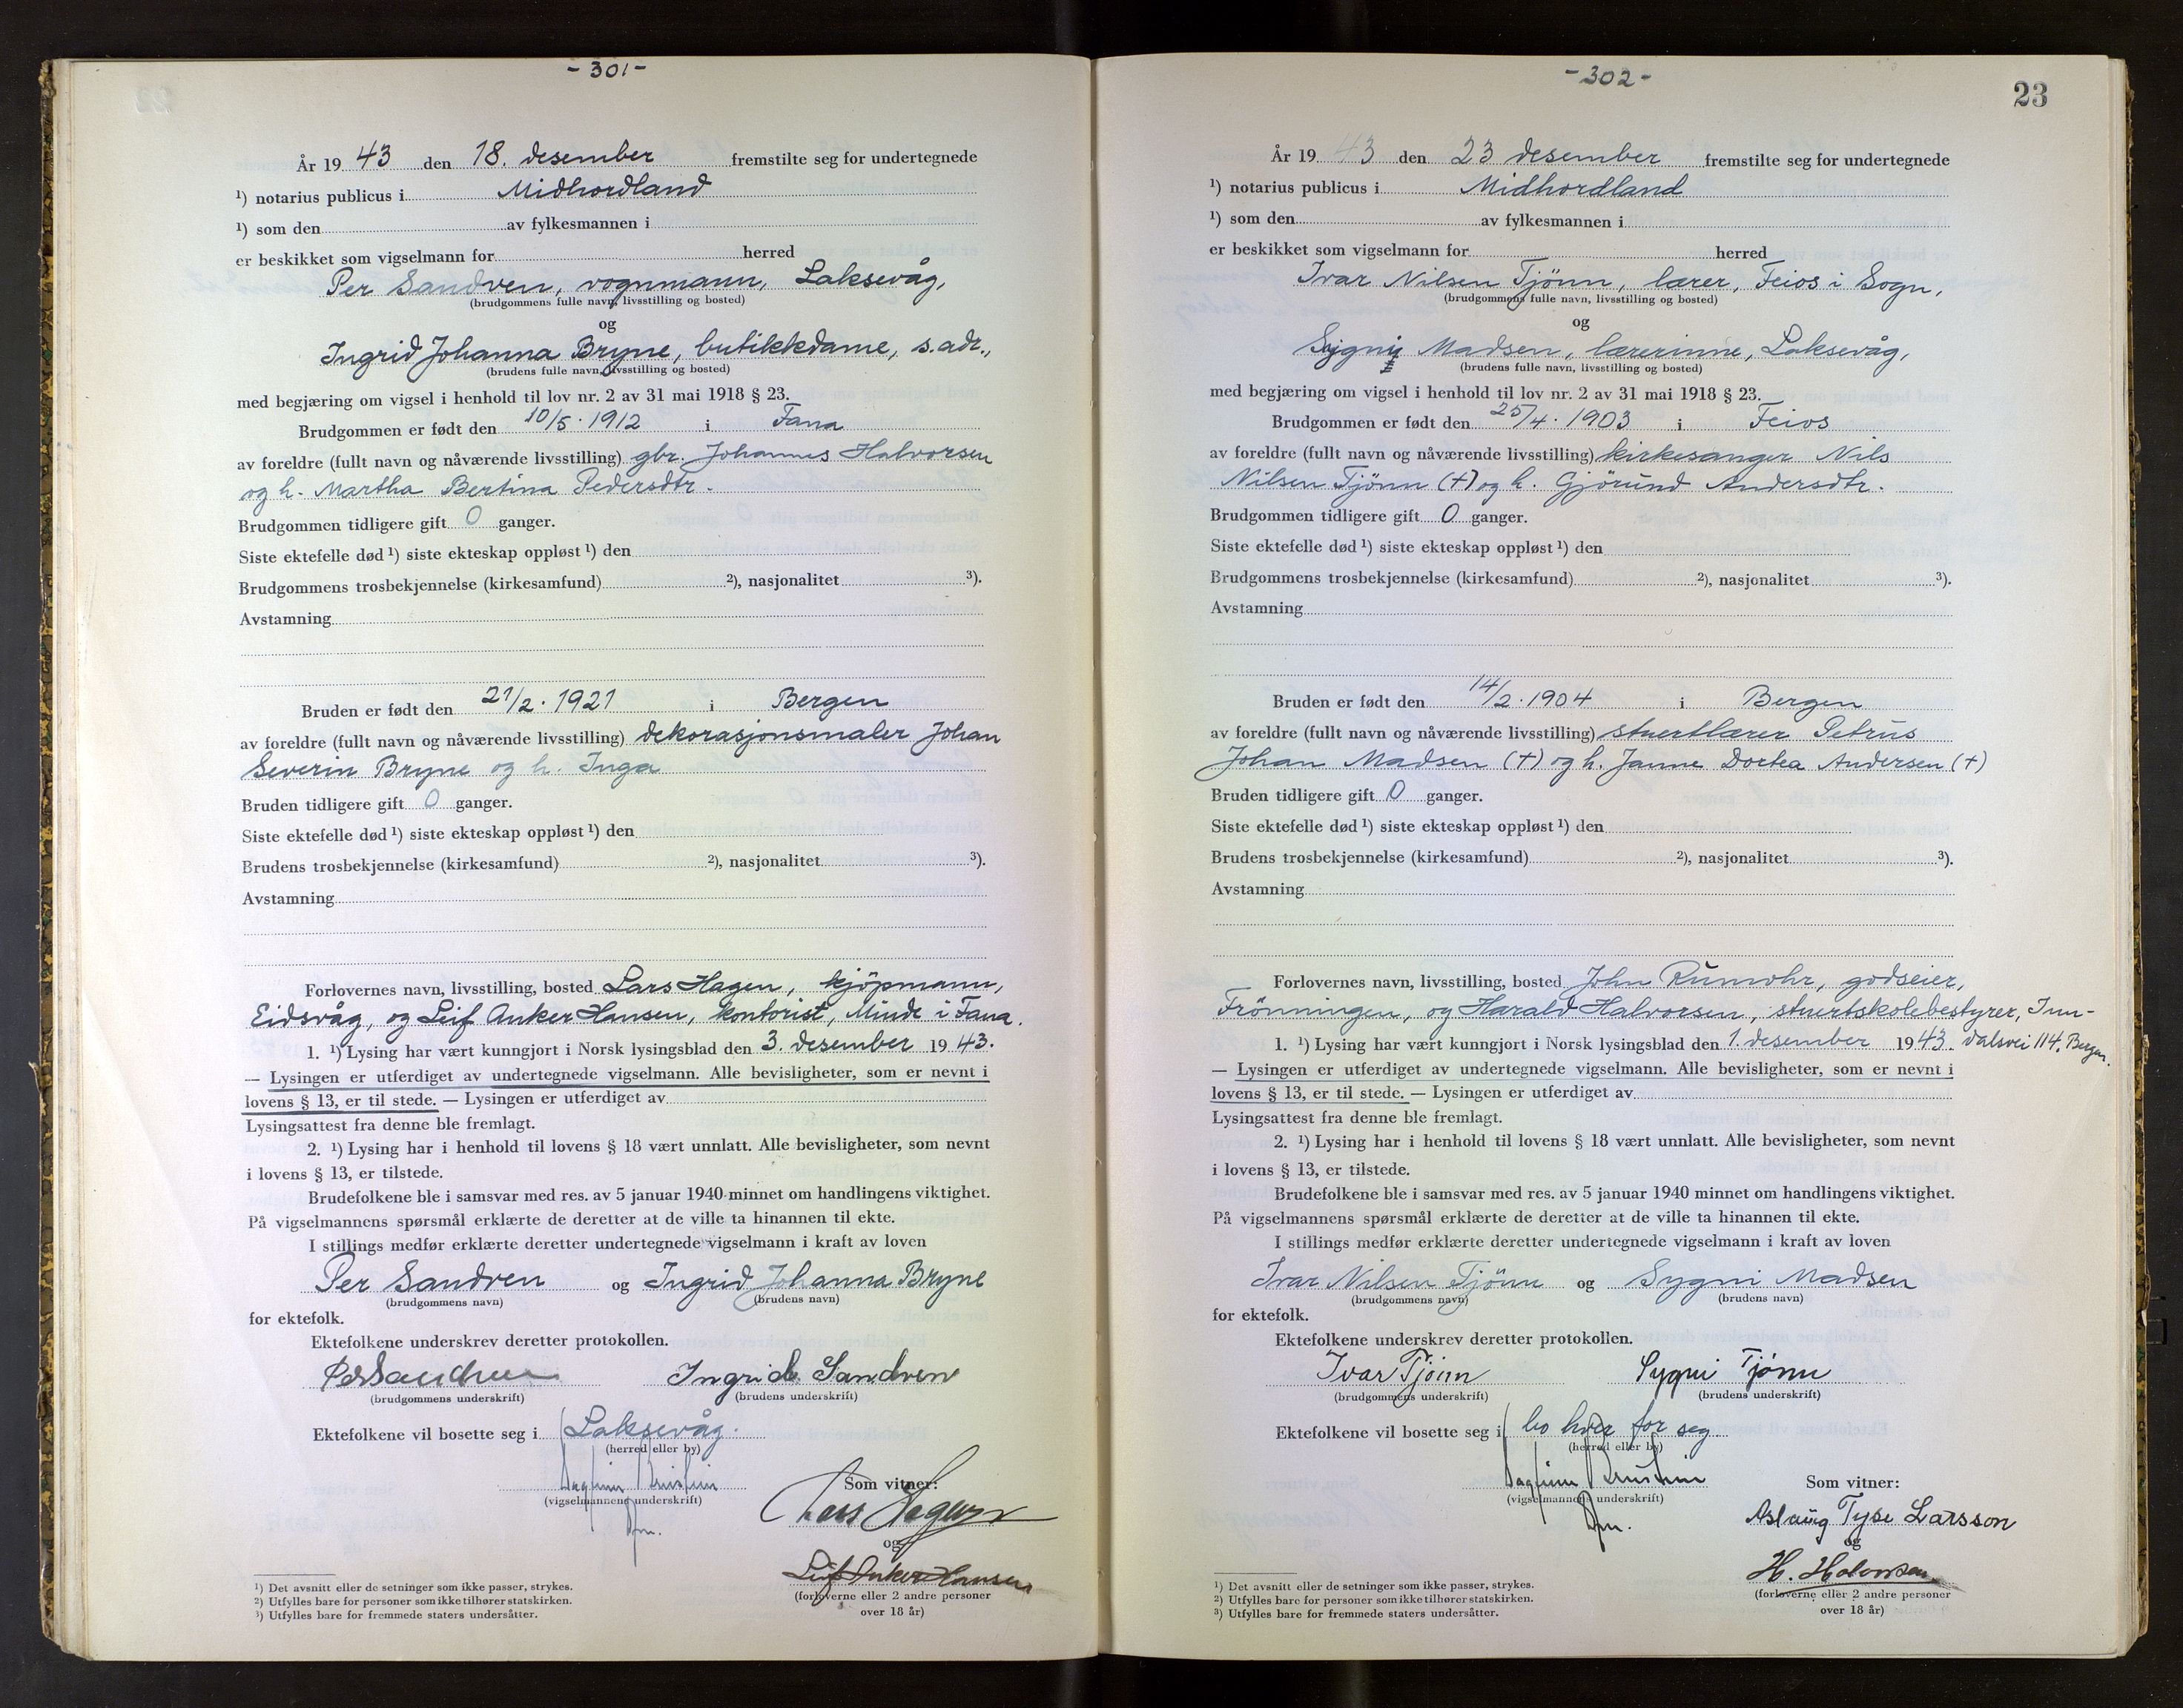 - 301 -
År 19 43 den 18. desember fremstilte seg for undertegnede
¹) notarius publicus i Midhordland
¹) som den av fylkesmannen i
er beskikket som vigselmann for herred
Per Sandven, vognmann, Laksevåg,
(brudgommens fulle navn, livsstilling og bosted)
og
Ingrid Johanna Bryne, butikkdame, s. adr.,
(brudens fulle navn, livsstilling og bosted)
med begjæring om vigsel i henhold til lov nr. 2 av 31 mai 1918 § 23.
Brudgommen er født den 10/5. 1912 i Fana
av foreldre (fullt navn og nåværende livsstilling) gbr. Johannes Halvorsen
og h. Martha Bertina Pedersdtr.
Brudgommen tidligere gift 0 ganger.
Siste ektefelle død ¹) siste ekteskap oppløst ¹) den
Brudgommens trosbekjennelse (kirkesamfund) ²), nasjonalitet ³).
Avstamning
Bruden er født den 21/2. 1921 i Bergen
av foreldre (fullt navn og nåværende livsstilling) dekorasjonsmaler Johan
Severin Bryne og h. Inga
Bruden tidligere gift 0 ganger.
Siste ektefelle død ¹) siste ekteskap oppløst ¹) den
Brudens trosbekjennelse (kirkesamfund) ²), nasjonalitet ³).
Avstamning
Forlovernes navn, livsstilling, bosted Lars Hagen, kjöpmann,
Eidsvåg, og Leif Anker Hansen, kontorist, Minde i Fana.
1. ¹) Lysing har vært kunngjort i Norsk lysingsblad den 3. desember 19 43.
— Lysingen er utferdiget av undertegnede vigselmann. Alle bevisligheter, som er nevnt i
lovens § 13, er til stede. — Lysingen er utferdiget av
Lysingsattest fra denne ble fremlagt.
2. ¹) Lysing har i henhold til lovens § 18 vært unnlatt. Alle bevisligheter, som nevnt
i lovens § 13, er tilstede.
Brudefolkene ble i samsvar med res. av 5 januar 1940 minnet om handlingens viktighet.
På vigselmannens spørsmål erklærte de deretter at de ville ta hinannen til ekte.
I stillings medfør erklærte deretter undertegnede vigselmann i kraft av loven
Per Sandven og Ingrid Johanna Bryne
(brudgommens navn) (brudens navn)
for ektefolk.
Ektefolkene underskrev deretter protokollen.
Per Sandven Ingrid Sandven
(brudgommens underskrift) (brudens underskrift)
Ektefolkene vil bosette seg i Laksevåg.
(herred eller by)
Som vitner:
(vigselmannens underskrift)
Lars Hagen
og
Leif Anker Hansen
(forloverne eller 2 andre personer
over 18 år)
¹) Det avsnitt eller de setninger som ikke passer, strykes.
²) Utfylles bare for personer som ikke tilhører statskirken.
³) Utfylles bare for fremmede staters undersåtter.
- 302 -
23
År 19 43 den 23 desember fremstilte seg for undertegnede
¹) notarius publicus i Midhordland
¹) som den av fylkesmannen i
er beskikket som vigselmann for herred
Ivar Nilsen Tjönn, lærer, Feios i Sogn,
(brudgommens fulle navn, livsstilling og bosted)
og
Sygni Madsen, lærerinne, Laksevåg,
(brudens fulle navn, livsstilling og bosted)
med begjæring om vigsel i henhold til lov nr. 2 av 31 mai 1918 § 23.
Brudgommen er født den 25/4. 1903 i Feios
av foreldre (fullt navn og nåværende livsstilling) kirkesanger Nils
Nilsen Tjönn (+) og h. Gjörund Andersdtr.
Brudgommen tidligere gift 0 ganger.
Siste ektefelle død ¹) siste ekteskap oppløst ¹) den
Brudgommens trosbekjennelse (kirkesamfund) ²), nasjonalitet ³).
Avstamning
Bruden er født den 14/2. 1904 i Bergen
av foreldre (fullt navn og nåværende livsstilling) stuertlærer Petrus
Johan Madsen (+) og h. Janne Dortea Andersen (+)
Bruden tidligere gift 0 ganger.
Siste ektefelle død ¹) siste ekteskap oppløst ¹) den
Brudens trosbekjennelse (kirkesamfund) ²), nasjonalitet ³).
Avstamning
Forlovernes navn, livsstilling, bosted John Rumohr, godseier,
Frönningen, og Harald Halvorsen, stuertskolebestyrer, Inn-
1. ¹) Lysing har vært kunngjort i Norsk lysingsblad den 1. desember 19 43. dalsvei 114, Bergen.
— Lysingen er utferdiget av undertegnede vigselmann. Alle bevisligheter, som er nevnt i
lovens § 13, er til stede. — Lysingen er utferdiget av
Lysingsattest fra denne ble fremlagt.
2. ¹) Lysing har i henhold til lovens § 18 vært unnlatt. Alle bevisligheter, som nevnt
i lovens § 13, er tilstede.
Brudefolkene ble i samsvar med res. av 5 januar 1940 minnet om handlingens viktighet.
På vigselmannens spørsmål erklærte de deretter at de ville ta hinannen til ekte.
I stillings medfør erklærte deretter undertegnede vigselmann i kraft av loven
Ivar Nilsen Tjönn og Sygni Madsen
(brudgommens navn) (brudens navn)
for ektefolk.
Ektefolkene underskrev deretter protokollen.
Ivar Tjönn Sygni Tjönn
(brudgommens underskrift) (brudens underskrift)
Ektefolkene vil bosette seg i bo hver for seg
(herred eller by)
Som vitner:
(vigselmannens underskrift)
Aslaug Tyse Larsson
og
H. Halvorsen
(forloverne eller 2 andre personer
over 18 år)
¹) Det avsnitt eller de setninger som ikke passer, strykes.
²) Utfylles bare for personer som ikke tilhører statskirken.
³) Utfylles bare for fremmede staters undersåtter.